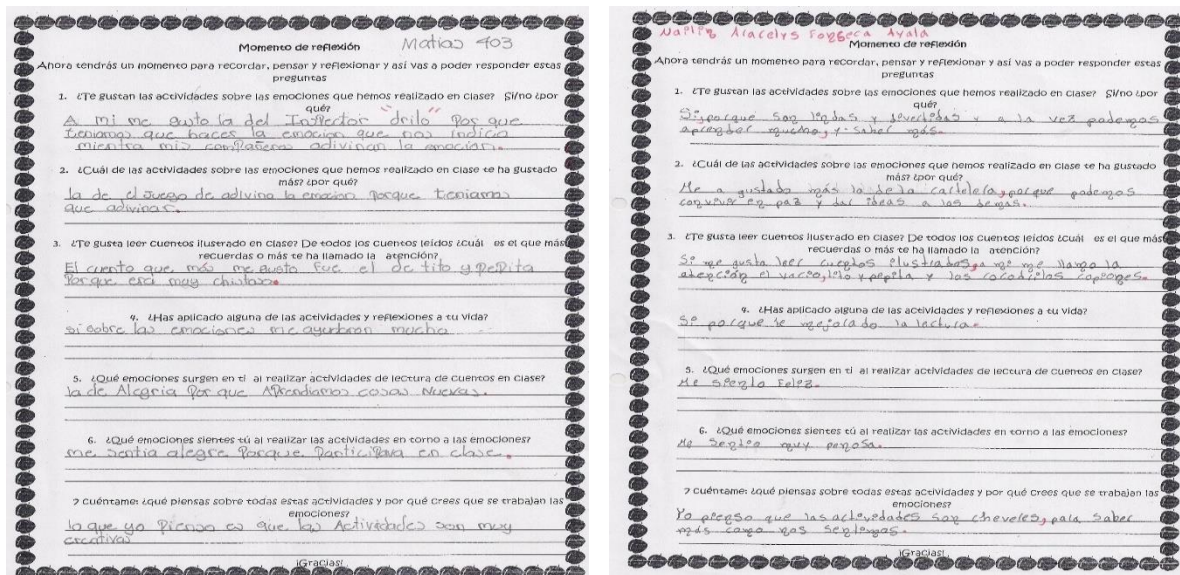 Momento de reflexión Matias 403
Ahora tendrás un momento para recordar, pensar y reflexionar y así vas a poder responder estas
preguntas
1. ¿Te gustan las actividades sobre las emociones que hemos realizado en clase? Si/no ¿por
qué?
A mi me gusto la del Inspector "drilo" Por que
teniamos que haces la emocion que nos indicio
mientra mis compañeros adivinan la emocion.
2. ¿Cuál de las actividades sobre las emociones que hemos realizado en clase te ha gustado
más? ¿por qué?
la de el Juego de adivino la emocion Porque teniamos
que adivinar.
3. ¿Te gusta leer cuentos ilustrado en clase? De todos los cuentos leídos ¿cuál es el que más
recuerdas o más te ha llamado la atención?
El cuento que más me gusto fue el de tito y PePita
Porque era muy chistoso.
4. ¿Has aplicado alguna de las actividades y reflexiones a tu vida?
si sobre las emociones me ayudaron mucho
5. ¿Qué emociones surgen en ti al realizar actividades de lectura de cuentos en clase?
la de Alegria Por que APrendiamos cosas Nuevas.
6. ¿Qué emociones sientes tú al realizar las actividades en torno a las emociones?
me sentia alegre Porque ParticiPava en clase.
7 Cuéntame: ¿qué piensas sobre todas estas actividades y por qué crees que se trabajan las
emociones?
lo que yo Pienso es que las Actividades son muy
creativas
¡Gracias!
Aracelys Fonseca Ayala
Momento de reflexión
Ahora tendrás un momento para recordar, pensar y reflexionar y así vas a poder responder estas
preguntas
1. ¿Te gustan las actividades sobre las emociones que hemos realizado en clase? Si/no ¿por
qué?
Si, porque son lindas y divertidas y a la vez podemos
aprender mucho, y saber más.
2. ¿Cuál de las actividades sobre las emociones que hemos realizado en clase te ha gustado
más? ¿por qué?
Me a gustado más la de la cartelera, porque podemos
convivir en paz y dar ideas a los demas.
3. ¿Te gusta leer cuentos ilustrado en clase? De todos los cuentos leídos ¿cuál es el que más
recuerdas o más te ha llamado la atención?
Si me gusta leer cuentos ilustrados, a mi me llamo la
atención el vacio, tito y pepita y los cocodrilos copiones.
4. ¿Has aplicado alguna de las actividades y reflexiones a tu vida?
Si porque e mejorado la lectura.
5. ¿Qué emociones surgen en ti al realizar actividades de lectura de cuentos en clase?
Me siento Feliz.
6. ¿Qué emociones sientes tú al realizar las actividades en torno a las emociones?
Me sentia muy penosa.
7 Cuéntame: ¿qué piensas sobre todas estas actividades y por qué crees que se trabajan las
emociones?
Yo pienso que las actividades son cheveles, para saber
más como nos sentimos.
¡Gracias!